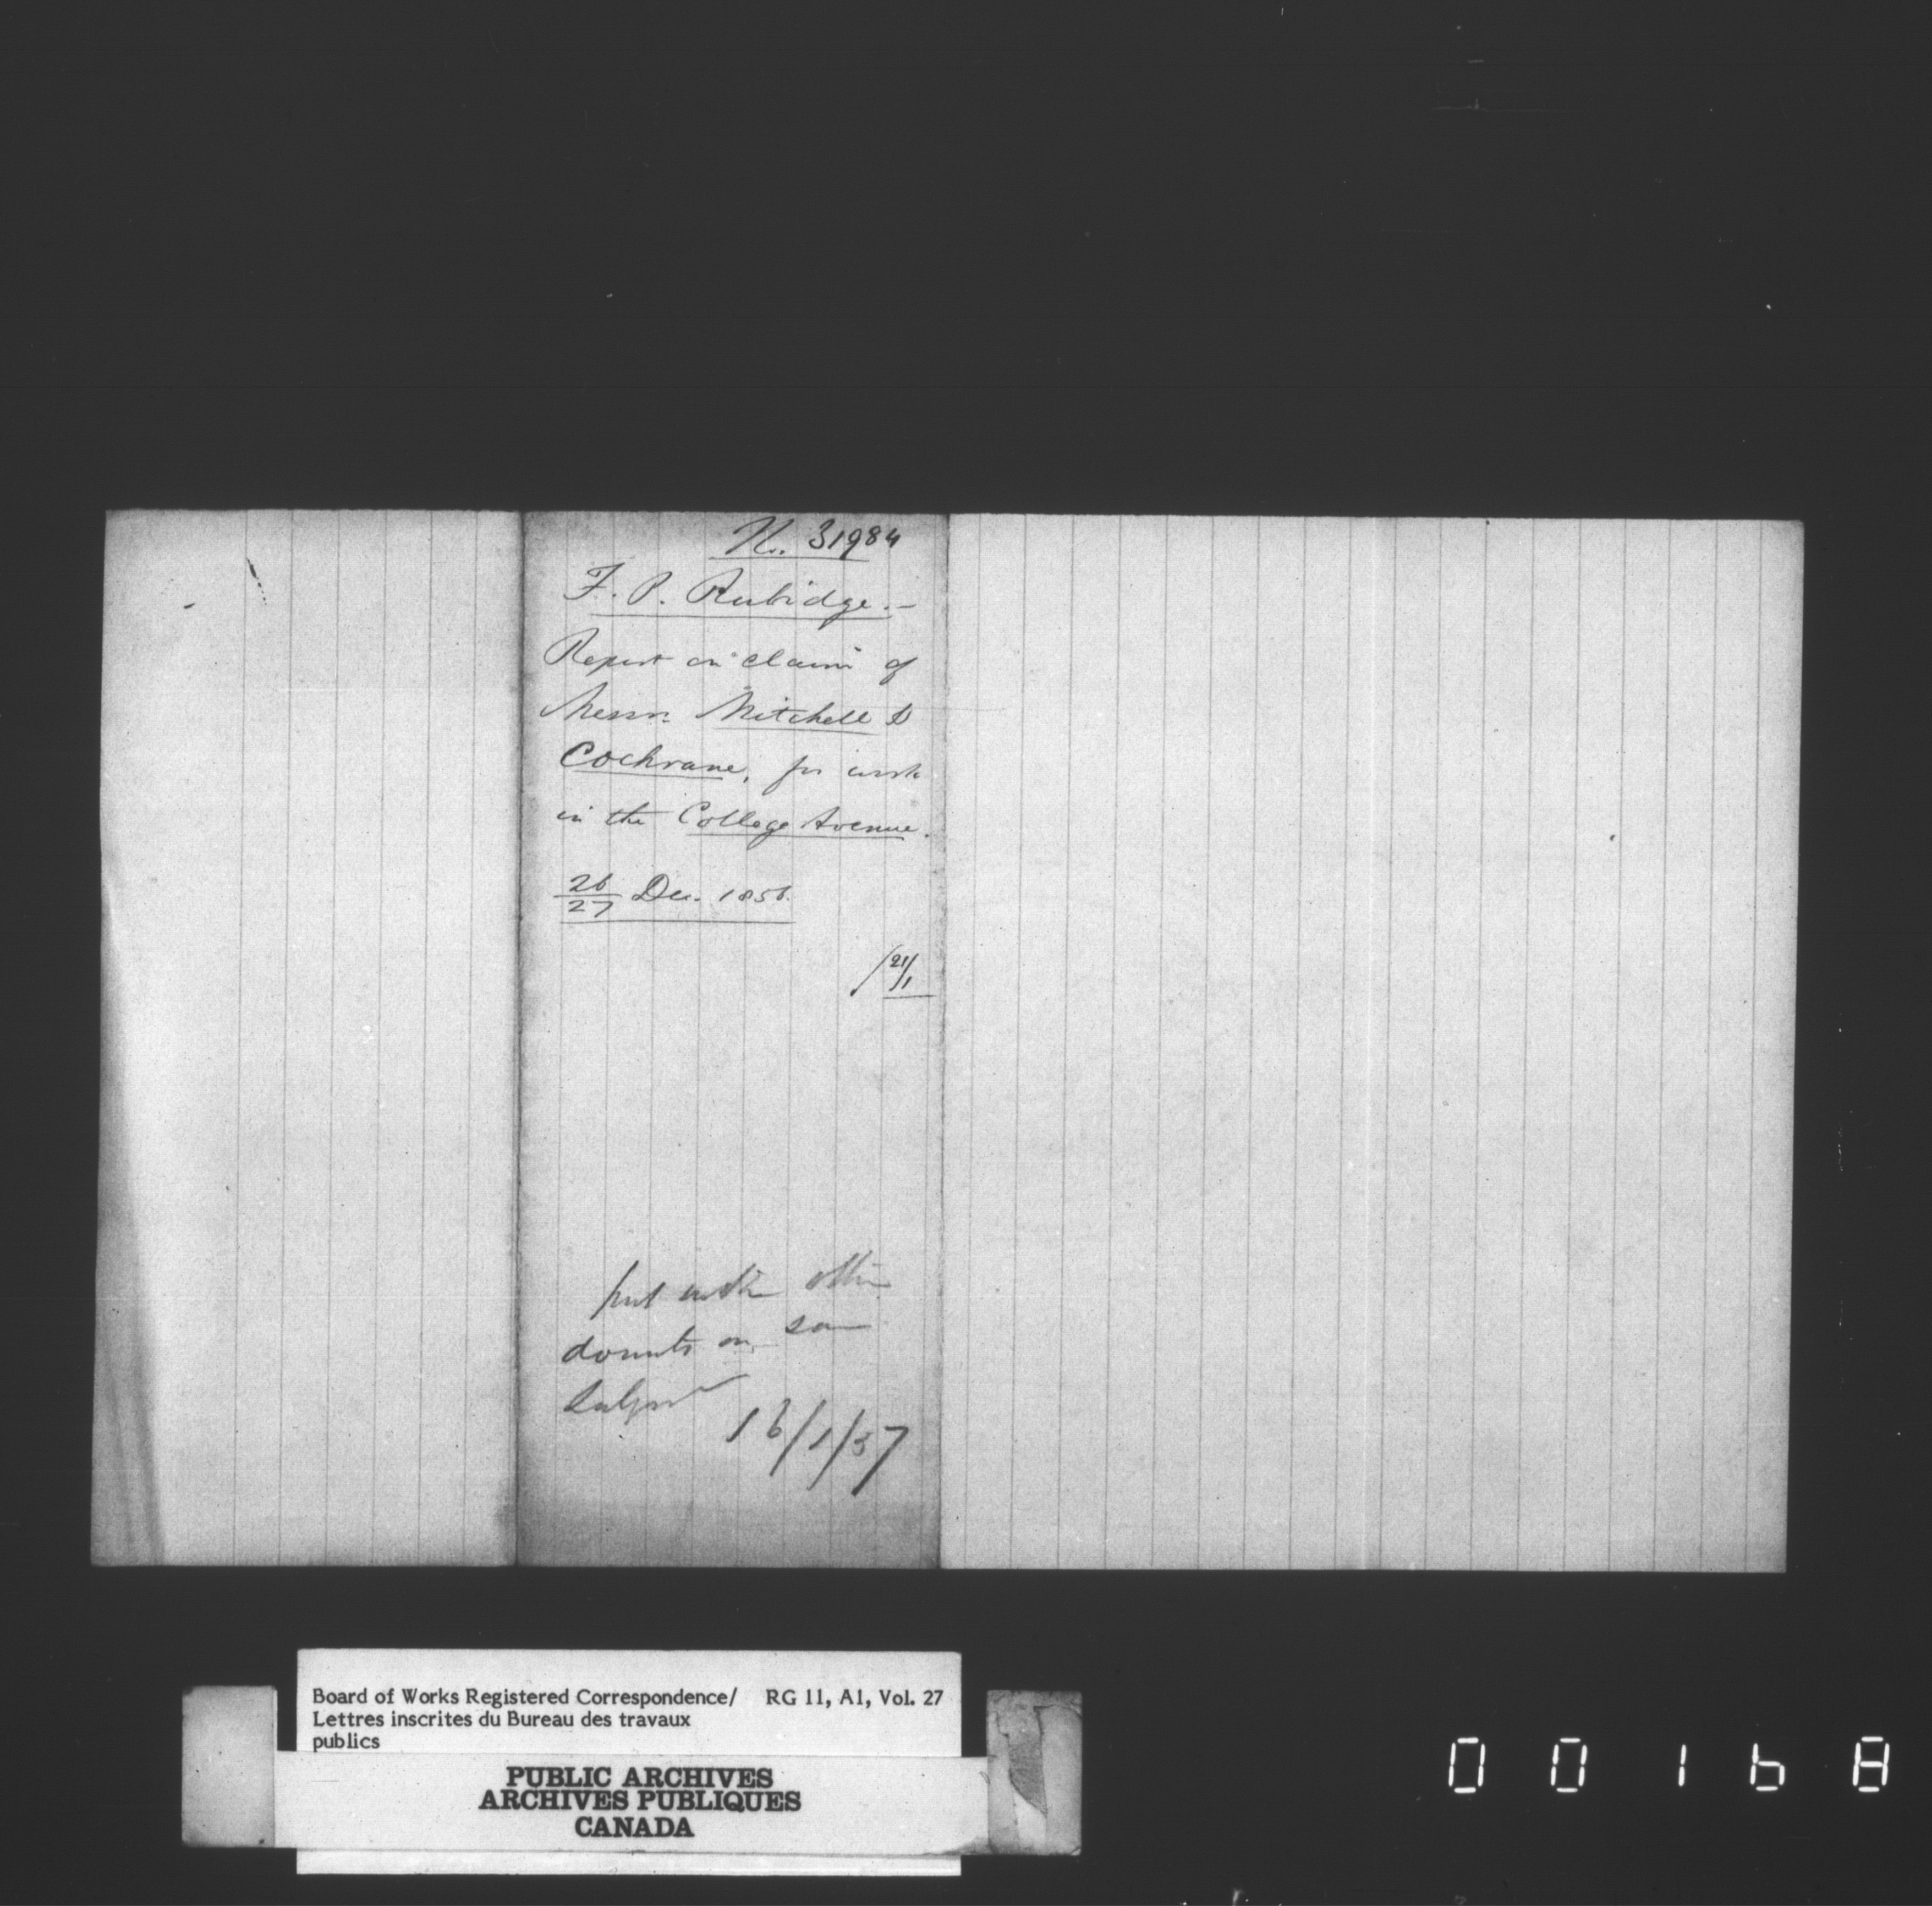 No. 31984
F. P. Rubidge.-
Report on claim of
Messrs. Mitchell &
Cochrane, for work
in the College Avenue.
26/27 Dec. 1856.
/21/1
put with other
documts on same
subject
16/1/57
Board of Works Registered Correspondence/ RG 11, A1, Vol. 27
Lettres inscrites du Bureau des travaux
publics
PUBLIC ARCHIVES
ARCHIVES PUBLIQUES
CANADA
00168